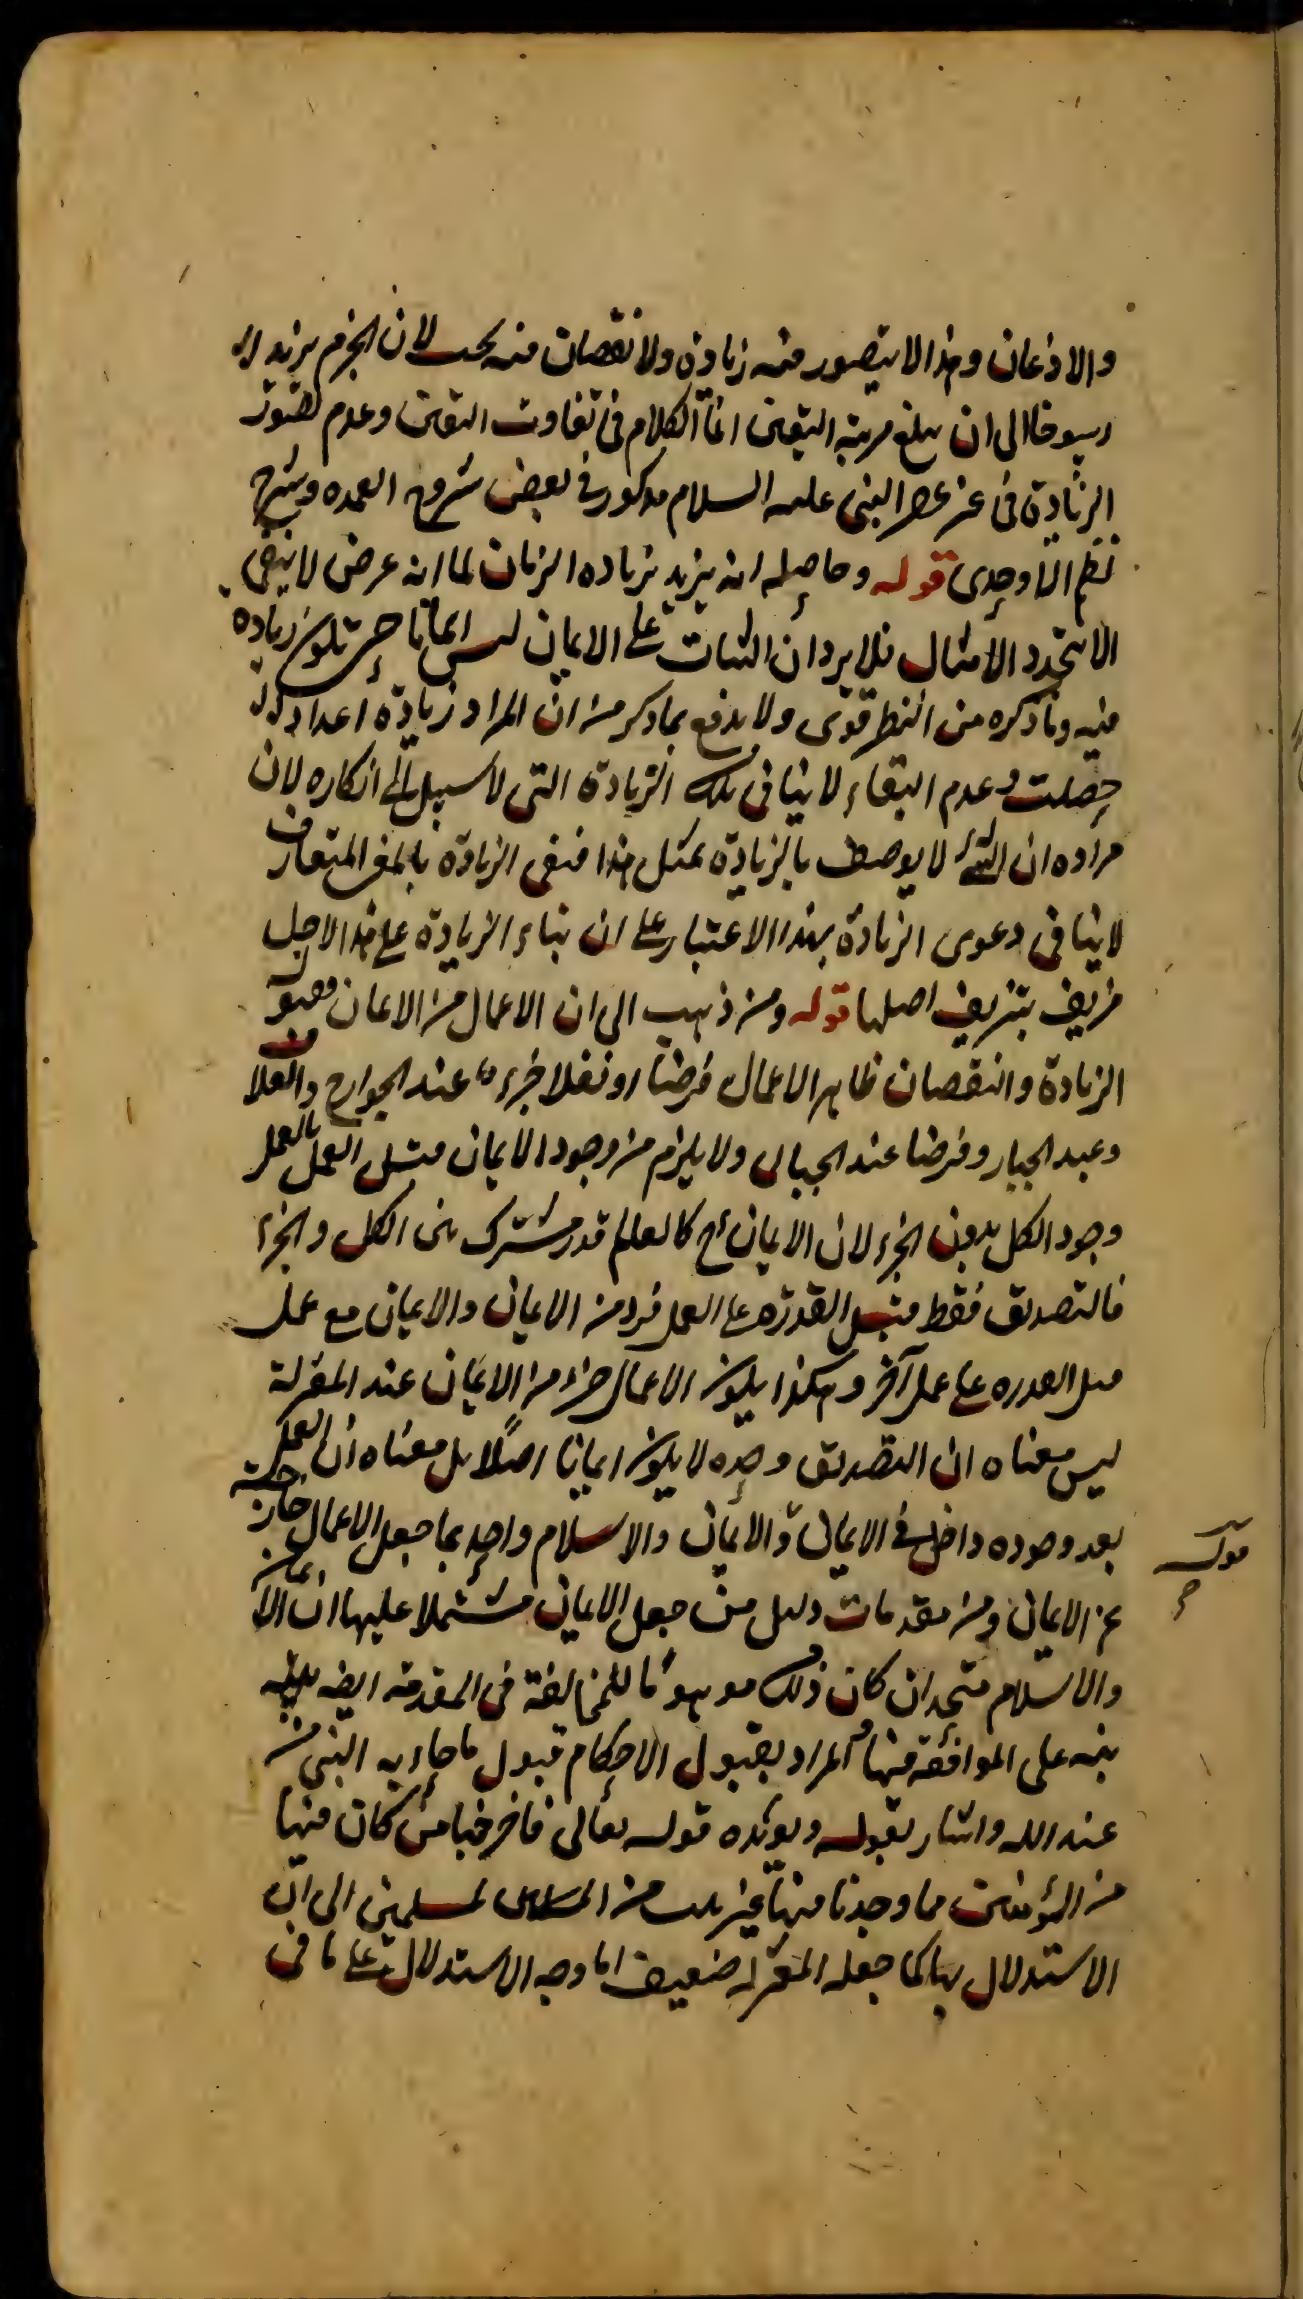 والاذعان وهذا لا يتصور فيه زيادة ولا نقصان فيه بحث لان الجزم يزيد
رسوخا الى ان يبلغ مرتبة اليقين انما الكلام في تفاوت اليقين وعدم تصور
الزيادة في غير عصر النبي عليه السلام مذكور في بعض شروح العمدة وشرح
نظم الاوحدي قوله وحاصله انه يزيد بزيادة الزمان لما انه عرض لا يبقى
الا بتجدد الامثال فلا يرد ان الثبات على الايمان ليس ايمانا حتى يكون زيادة
فيه وما ذكره من النظر قوي ولا يدفع بما ذكر من ان المراد زيادة اعداد
حصلت وعدم البقاء لا ينافي تلك الزيادة التي لا سبيل الى انكاره لان
مراده ان الشيء لا يوصف بالزيادة بمثل هذا فنفى الزيادة بالمعنى المتعارف
لا ينافي دعوى الزيادة بهذا الاعتبار على ان بناء الزيادة على هذا الاصل
مزيف بتزييف اصلها قوله ومن ذهب الى ان الاعمال من الايمان فقبوله
الزيادة والنقصان ظاهر الاعمال فرضا او نفلا جزء عند الخوارج والعلاف
وعبد الجبار وفرضا عند الجبائي ولا يلزم من وجود الايمان قبل العمل بالعمل
وجود الكل بدون الجزء لان الايمان ح كالعلم قدر مشترك بين الكل والجزء
فالتصديق فقط قبل القدرة على العمل فرد من الايمان والايمان مع عمل
قبل القدرة على عمل آخر وهكذا يكون الاعمال جزء من الايمان عند المعتزلة
ليس معناه ان التصديق وحده لا يكون ايمانا اصلا بل معناه ان العمل
بعد وجوده داخل في الايمان والايمان والاسلام واحد بما جعل الاعمال خارجة
عن الايمان ومن مقدمات دليل من جعل الايمان مشتملا عليها ان الايمان
والاسلام متحدان كان ذلك موهما للمخالفة في المقدمة ايضه
نبه على الموافقة فيها والمراد بقبول الاحكام قبول ما جاء به النبي من
عند الله واشار بقوله ويؤيده قوله تعالى فاخرجنا من كان فيها
من المؤمنين فما وجدنا فيها غير بيت من المسلمين الى ان
الاستدلال بها كما جعله المعتزلة ضعيف اما وجه الاستدلال على ما في
قوله